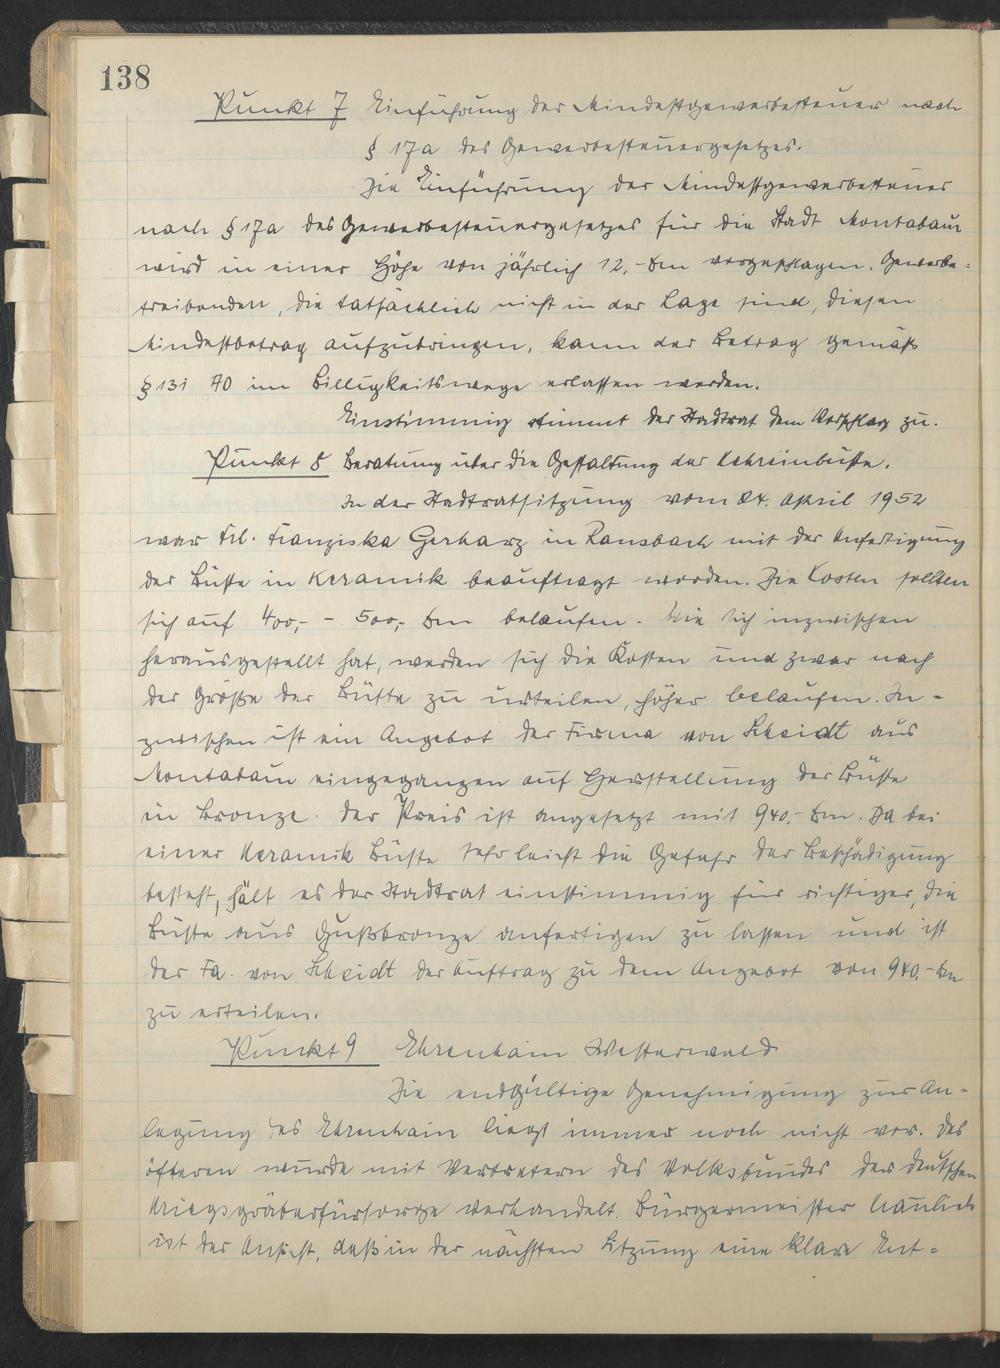 138
Punkt 7 Einführung der Mindestgewerbesteuer nach
§ 17a des Gewerbesteuergesetzes.
Die Einführung der Mindestgewerbesteuer
nach § 17a des Gewerbesteuergesetzes für die Stadt Montabaur
wird in einer Höhe von jährlich 12,- Dm vorgeschlagen. Gewerbe-
treibenden, die tatsächlich nicht in der Lage sind, diesen
Mindestbetrag aufzubringen, kann der Betrag gemäß
§ 131 AO im Billigkeitswege erlassen werden.
Einstimmig stimmt der Stadtrat dem Vorschlag zu.
Punkt 8 Beratung über die Gestaltung der Kehreinbüste.
In der Stadtratsitzung vom 24. April 1952
war Frl. Franziska Gerharz in Ransbach mit der Anfertigung
der Büste in Keramik beauftragt worden. Die Kosten sollten
sich auf 400,- - 500,- Dm belaufen. Wie sich inzwischen
herausgestellt hat, werden sich die Kosten und zwar nach
der Größe der Büste zu urteilen, höher belaufen. In-
zwischen ist ein Angebot der Firma von Scheidt aus
Montabaur eingegangen auf Herstellung der Büste
in Bronze. Der Preis ist angesetzt mit 940.- Dm. Da bei
einer Keramik Büste sehr leicht die Gefahr der Beschädigung
besteht, hält es der Stadtrat einstimmig für richtiger, die
Büste aus Gußbronze anfertigen zu lassen und ist
der Fa. von Scheidt der Auftrag zu dem Angebot von 940.- Dm
zu erteilen.
Punkt 9 Ehrenhain Westerwald
Die endgültige Genehmigung zur An-
legung des Ehrenhain liegt immer noch nicht vor. Des
öfteren wurde mit Vertretern des Volksbundes der deutschen
Kriegsgräberfürsorge verhandelt. Bürgermeister
ist der Ansicht, daß in der nächsten Sitzung eine klare Ent-